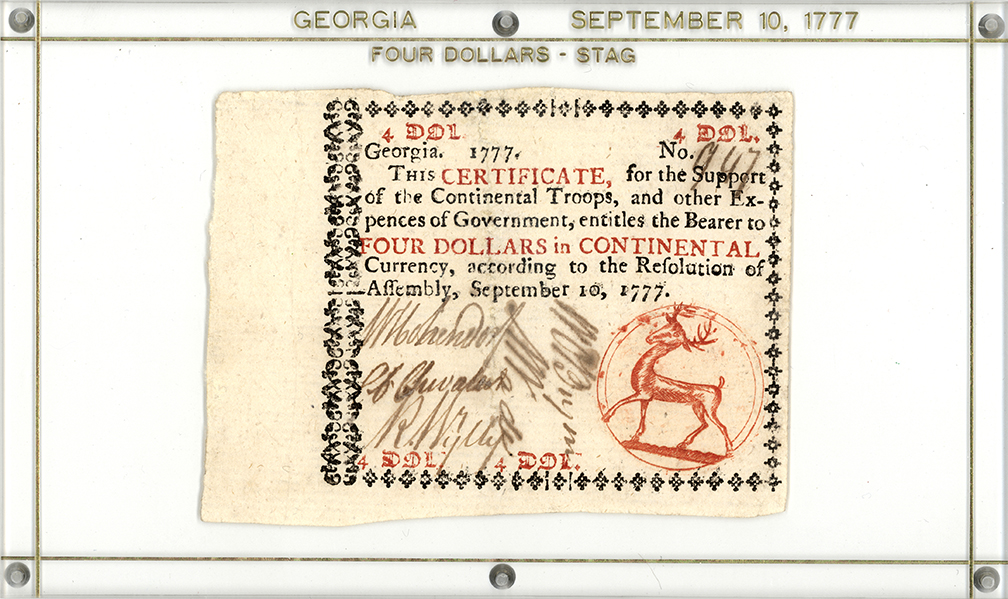 GEORGIA SEPTEMBER 10, 1777
FOUR DOLLARS - STAG
4 DOL 4 DOL.
Georgia. 1777. No. 947
THIS CERTIFICATE, for the Support
of the Continental Troops, and other Ex-
pences of Government, entitles the Bearer to
FOUR DOLLARS in CONTINENTAL
Currency, according to the Resolution of
Assembly, September 10, 1777.
R. Wylly
4 DOL 4 DOL.